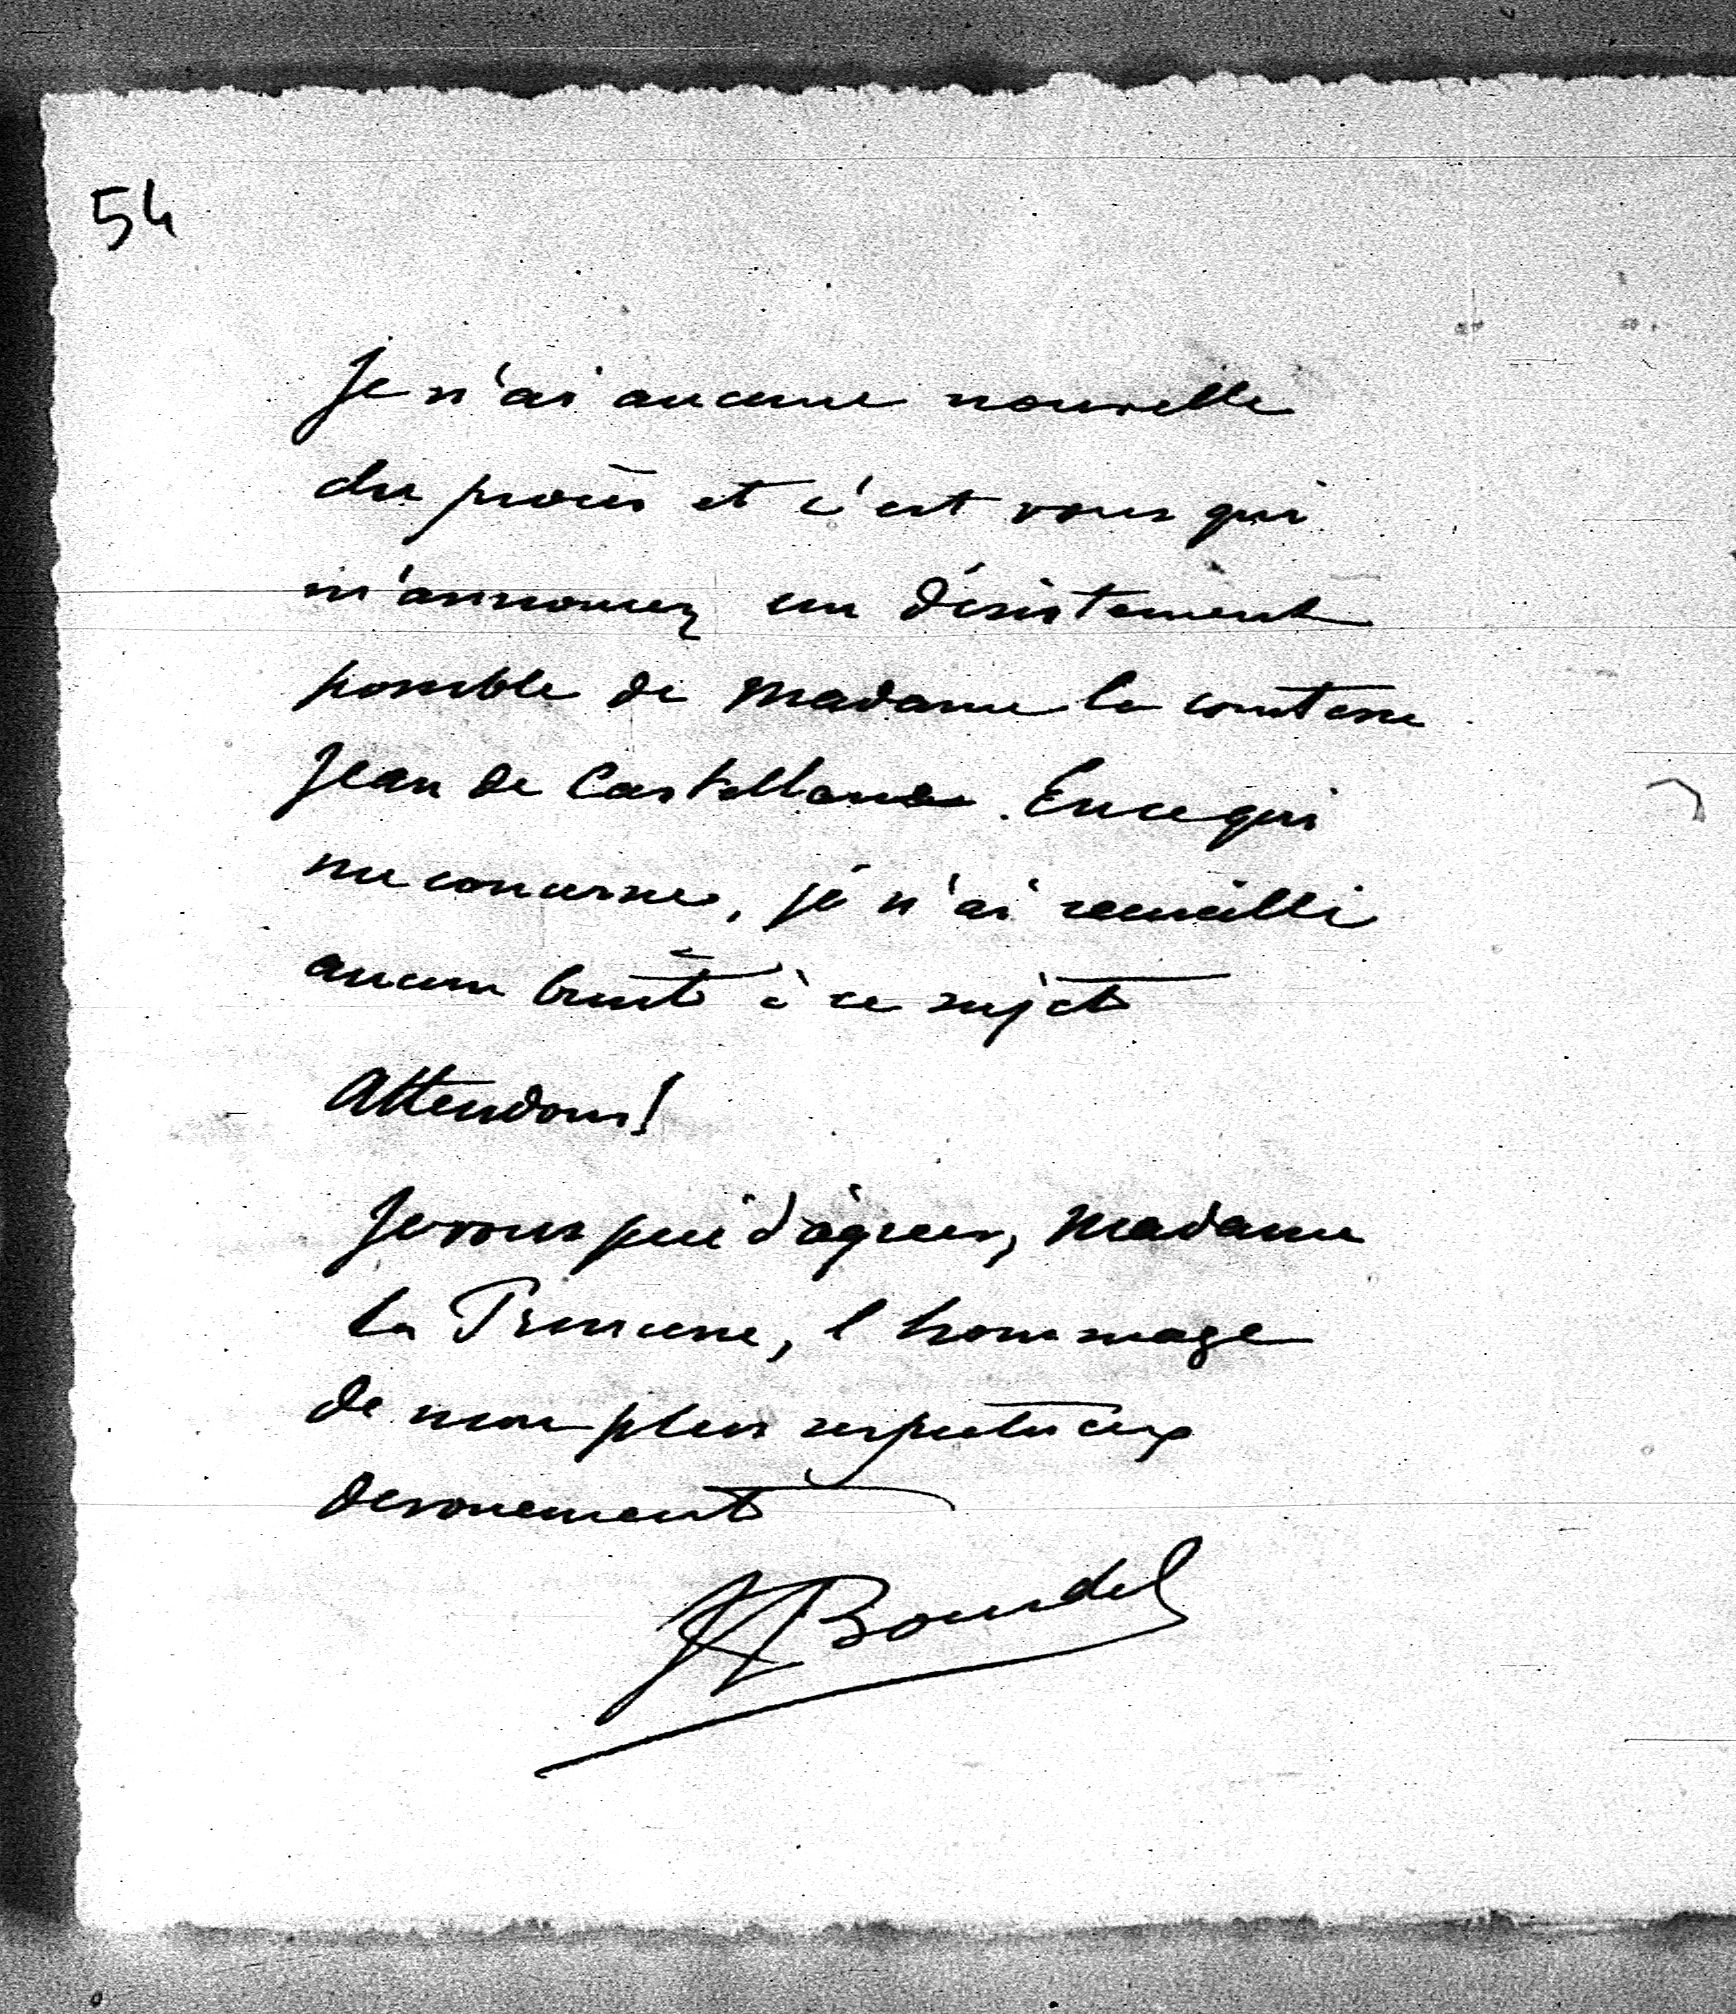 54
Je n'ai aucune nouvelle
du procès et c'est vous qui
m'annoncez un désistement
possible de Madame la comtesse
Jean de Castellane. En ce qui
me concerne, je n'ai recueilli
aucun bruit à ce sujet
Attendons!
Je vous prie d'agréer, Madame
la Princesse, l'hommage
de mon plus respectueux
devouement
Bourdel